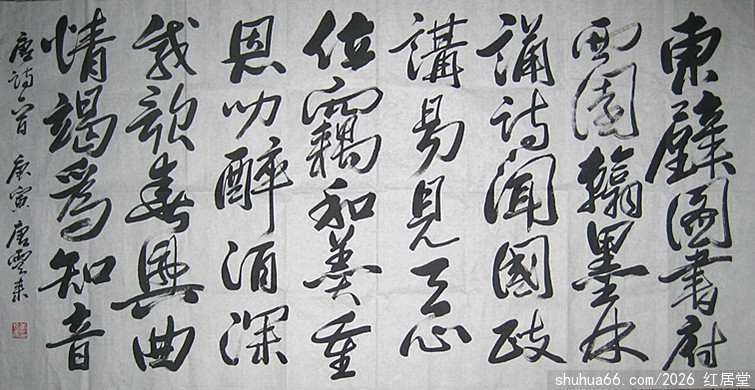 東壁圖書府
西園翰墨林
誦詩聞國政
講易見天心
位竊和羹重
恩叨醉酒深
我歌春興曲
情竭為知音
唐詩一首 庚寅 唐雲來
shuhua66.com/2026 红居堂